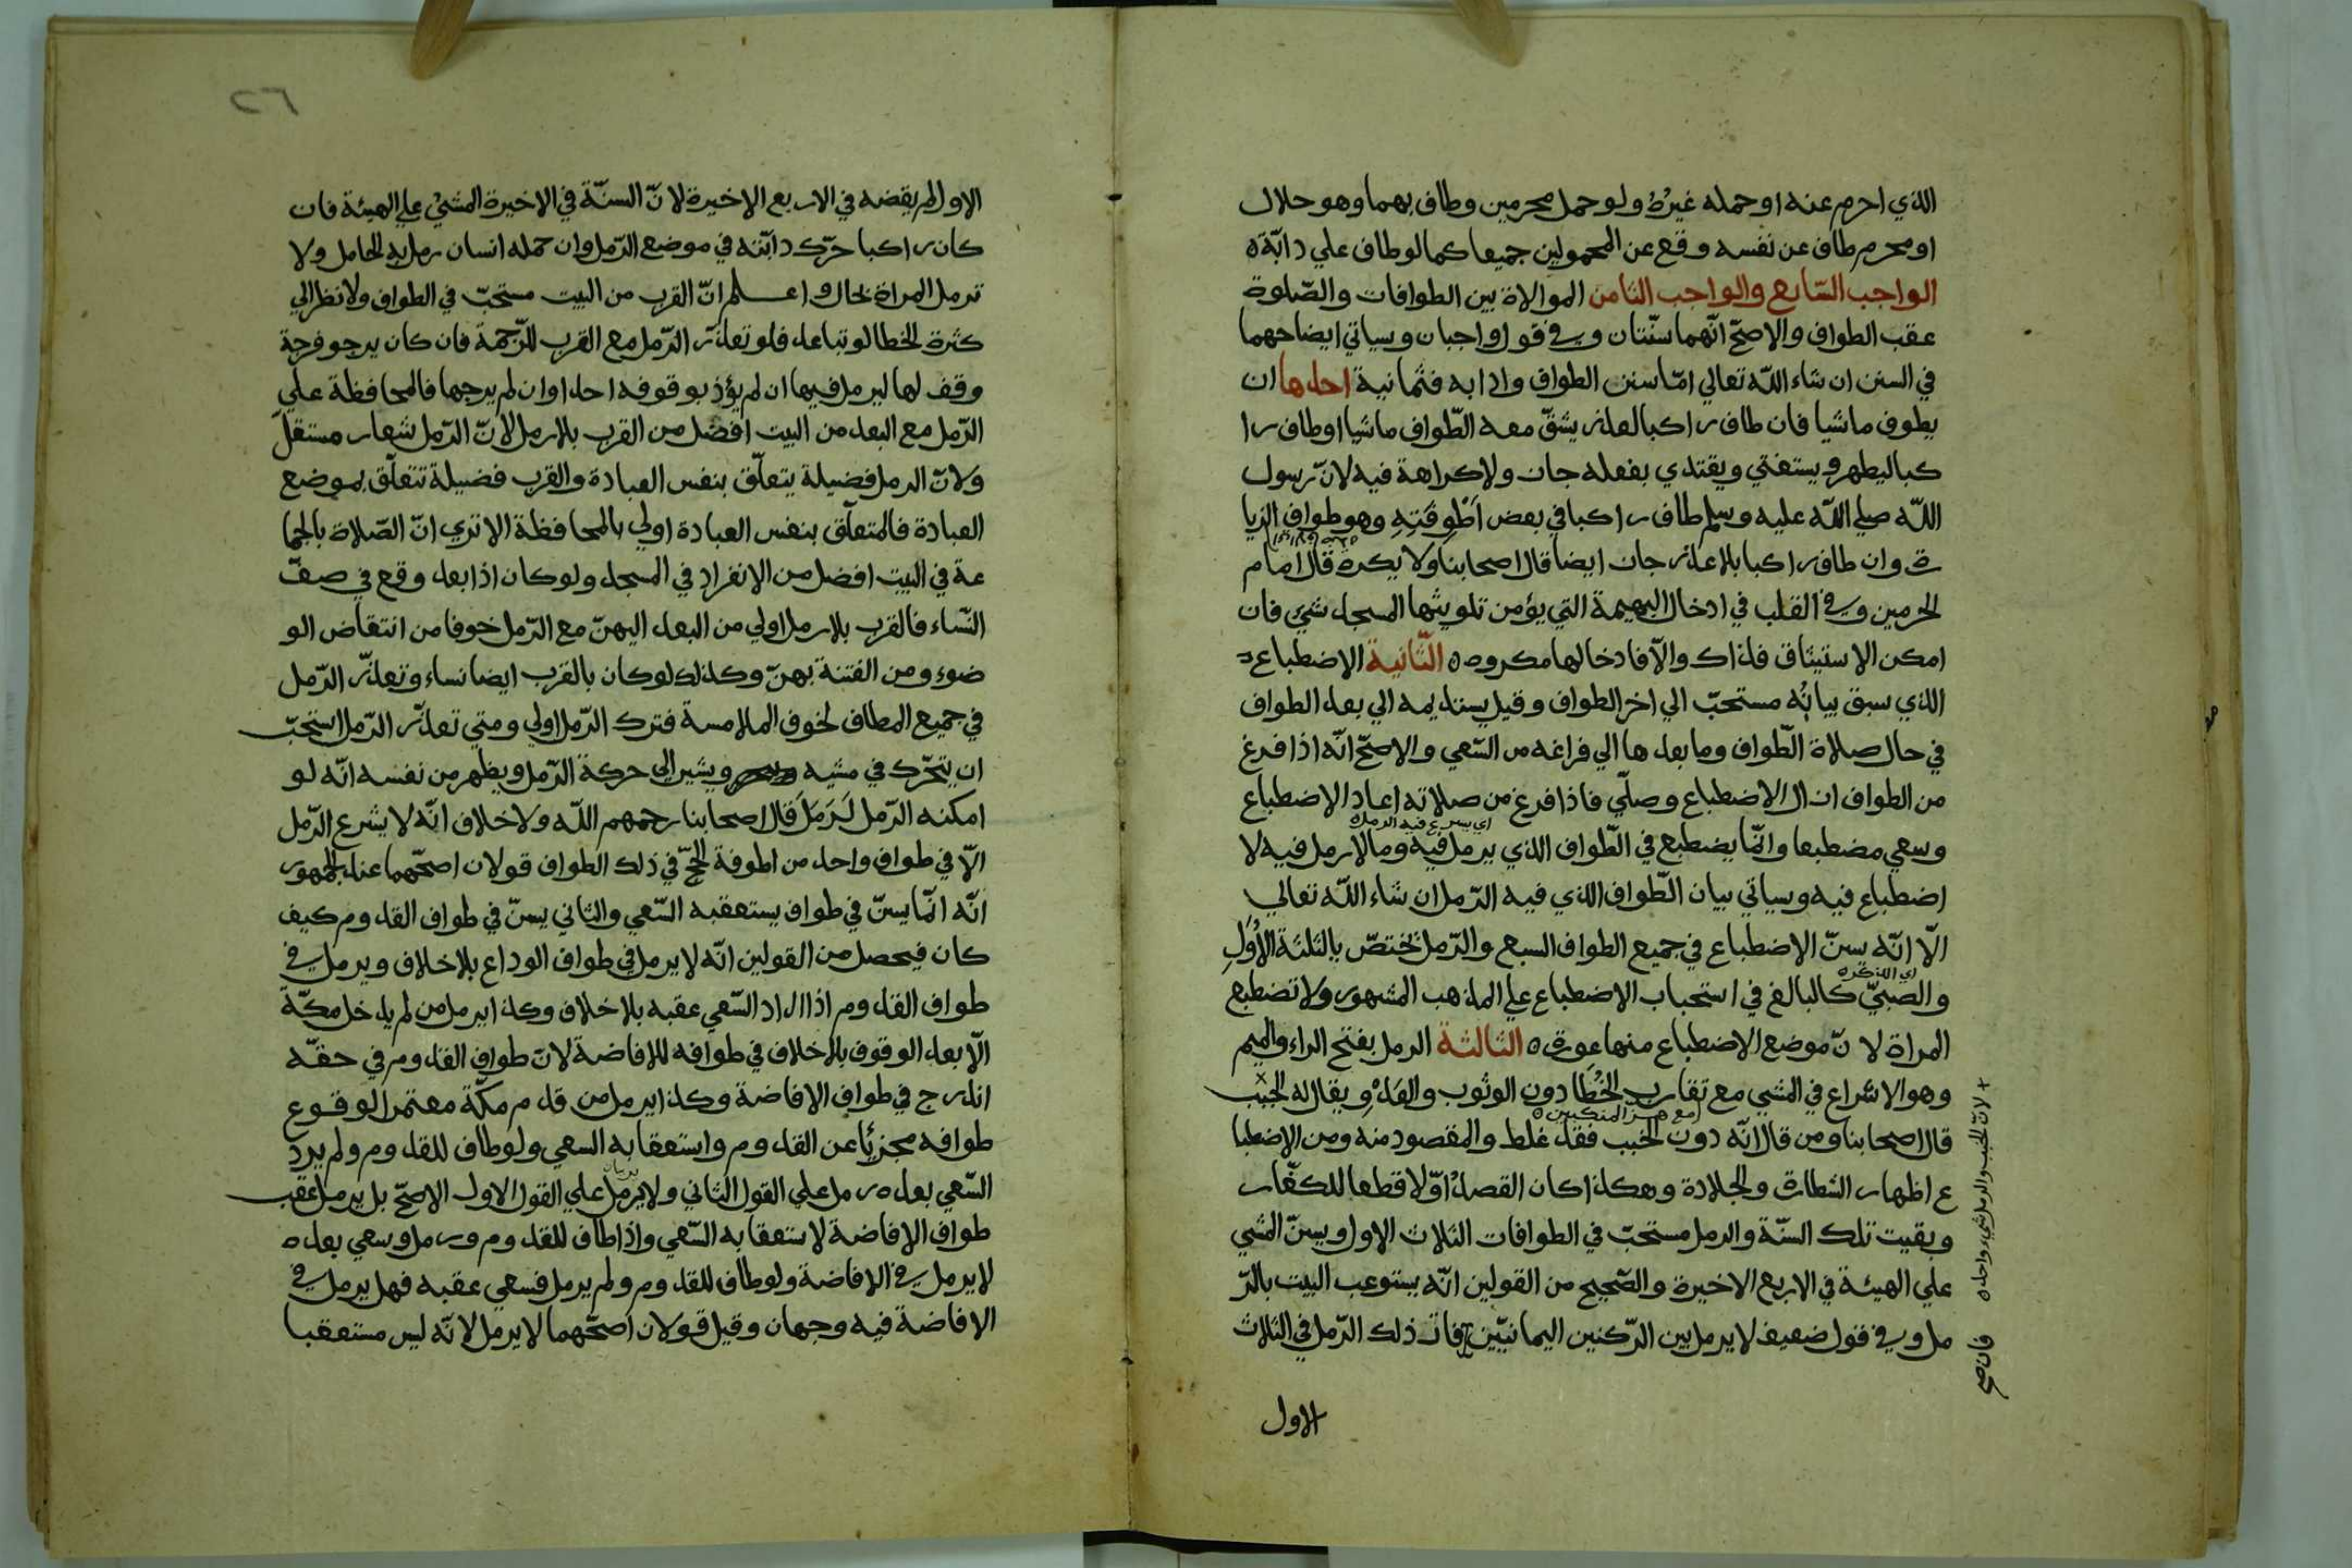 الذي احرم عنه او حمله غيرُهُ ولو حمل محرمين وطاف بهما وهو حلال
او محرم طاف عن نفسه وقع عن المحمولين جميعا كما لو طاف علي دابّة ه
الواجب السّابع والواجب الثامن الموالاة بين الطوافات والصّلوة
عقب الطواف والاصحّ انّهما سنّتان وفي قول واجبان وسياتي ايضاحهما
في السنن ان شاء اللّه تعالي امّا سنن الطواف وادابه فثمانية احدها ان
يطوف ماشيا فان طاف راكبا لعذر يشقّ معه الطّواف ماشيا او طاف را
كبا ليظهر ويستفتي ويقتدي بفعله جاز ولا كراهة فيه لانّ رسول
اللّه صلي اللّه عليه وسلم طاف راكبا في بعض اَطْوِفَتِهِ وهو طواف الزيا
رة وان طاف راكبا بلا عذر جاز ايضا قال اصحابنا ولا يكره قال امام
الحرمين وفي القلب في ادخال البهيمة التي يؤمن تلويثها المسجد شئ فان
امكن الاستيثاق فذاك والّا فادخالها مكروه ه الثّانية الاضطباع
الذي سبق بيانُه مستحبّ الي اخر الطواف وقيل يستديمه الي بعد الطواف
في حال صلاة الطّواف وما بعدها الي فراغه من السّعي والاصحّ انّه اذا فرغ
من الطواف ازال الاضطباع وصلّي فاذا فرغ من صلاته اعاد الاضطباع
اي يسرع فيه الرمل ه
وسعي مضطبعا وانّما يضطبع في الطّواف الذي يرمل فيه وما لا رمل فيه لا
اضطباع فيه وسياتي بيان الطّواف الذي فيه الرّمل ان شاء اللّه تعالي
الّا انّه يسنّ الاضطباع في جميع الطواف السبع والرّمل يختصّ بالثلثة الْأُوَلِ
اي الذكر ه
والصبيّ كالبالغ في استحباب الاضطباع علي المذهب المشهور ولا تضطبع
المراة لانّ موضع الاضطباع منها عورة ه الثالثة الرمل بفتح الراء والميم
وهو الاسْراع في المشي مع تقارب الخُطَا دون الوثوب والعَدْوِ ويقال له الخبب
مع هز المنكبين ه
قال اصحابنا ومن قال انّه دون الخبب فقد غلط والمقصود منه ومن الاضطبا
ع اظهار الشطارة والجلادة وهكذا كان القصدُ اوّلا قطعا للكفّار
وبقيت تلك السنّة والرمل مستحبّ في الطوافات الثلاث الاول ويسنّ المشي
علي الهيئة في الاربع الاخيرة والصّحيح من القولين انّه يستوعب البيت بالرّ
مل وفي قول ضعيف لا يرمل بين الرّكنين اليمانيّين فات ذلك الرّمل في الثلاث
الاول
+ لانّ الخبب والرمل شيء واحد ه
فان صح
٢٦
الاول لم يقضه في الاربع الاخيرة لانّ السنّة في الاخيرة المشيُ علي الهيئة فان
كان راكبا حرّك دابّته في موضع الرّمل وان حمله انسان رمل به الحامل ولا
ترمل المراة بحال واعلم انّ القرب من البيت مستحبّ في الطواف ولا نظر الي
كثرة الخطا لو تباعد فلو تعذّر الرّمل مع القرب للزّحمة فان كان يرجو فرجة
وقف لها ليرمل فيها ان لم يؤذ بوقوفه احدا وان لم يرجها فالمحافظة علي
الرّمل مع البعد من البيت افضل من القرب بلا رمل لانّ الرّمل شعار مستقلّ
ولانّ الرمل فضيلة يتعلّق بنفس العبادة والقرب فضيلة تتعلّق بموضع
العبادة فالمتعلّق بنفس العبادة اولي بالمحافظة الا تري انّ الصّلاة بالجما
عة في البيت افضل من الانفراد في المسجد ولو كان اذا بعد وقع في صفّ
النّساء فالقرب بلا رمل اولي من البعد اليهنّ مع الرّمل خوفا من انتقاض الو
ضوء ومن الفتنة بهنّ وكذلك لو كان بالقرب ايضا نساء وتعذّر الرّمل
في جميع المطاف لخوف الملامسة فترك الرّمل اولي ومتي تعذّر الرّمل استحبّ
ان يتحرّك في مشيه ويشير الي حركة الرّمل ويظهر من نفسه انّه لو
امكنه الرّمل لَرَمَلَ قال اصحابنا رحمهم اللّه ولا خلاف انّه لا يشرع الرّمل
الّا في طواف واحد من اطوفة الحجّ في ذلك الطواف قولان اصحّهما عند الجمهور
انّه انّما يسنّ في طواف يستعقبه السّعي والثاني يسنّ في طواف القدوم كيف
كان فيحصل من القولين انّه لا يرمل في طواف الوداع بلا خلاف ويرمل في
طواف القدوم اذا اراد السّعي عقبه بلا خلاف وكذا يرمل من لم يدخل مكّة
الّا بعد الوقوف بلا خلاف في طوافه للافاضة لانّ طواف القدوم في حقّه
اندرج في طواف الافاضة وكذا يرمل من قدم مكّة معتمرا لوقوع
طوافه مجزيًا عن القدوم واستعقابه السعي ولو طاف للقدوم ولم يرد
السّعي بعده رمل علي القول الثاني ولا يرمل علي القول الاول الاصحّ بل يرمل عقب
طواف الافاضة لاستعقابه السّعي واذا طاف للقدوم ورمل وسعي بعده
لا يرمل في الافاضة ولو طاف للقدوم ولم يرمل فسعي عقبه فهل يرمل في
الافاضة فيه وجهان وقيل قولان اصحّهما لا يرمل لانّه ليس مستعقبا